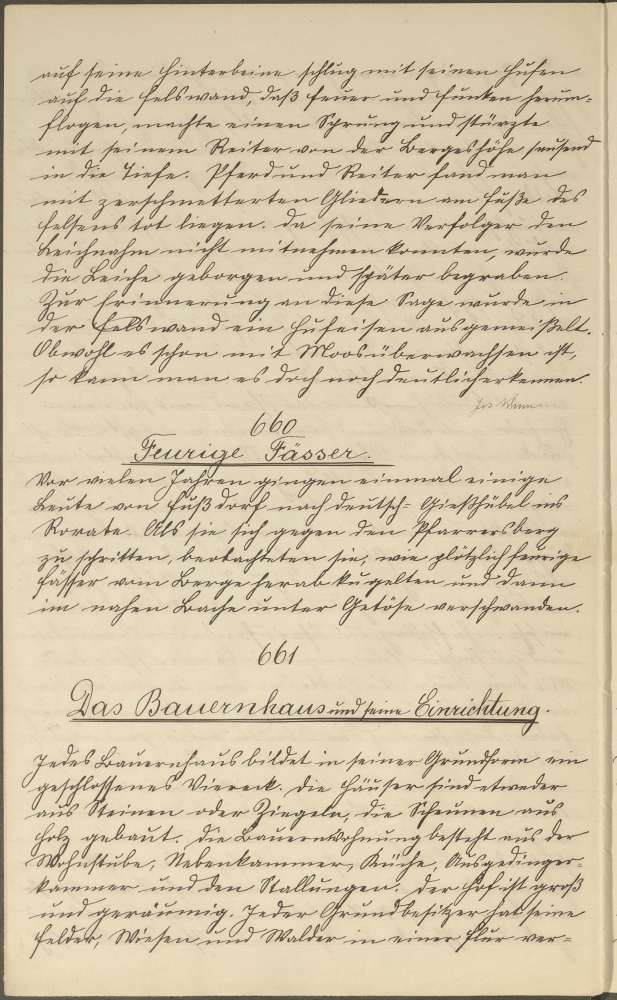 auf seine Hinterbeine schlug mit seinen Hufen
auf die Felswand, daß Feuer und Funken herum=
flogen, machte einen Sprung und stürzte
mit seinem Reiter von der Bergeshöhe sausend
in die Tiefe. Pferd und Reiter fand man
mit zerschmetterten Gliedern am Fuße des
Felsens tot liegen. Da seine Verfolger den
Leichnahm nicht mitnehmen konnten, wurde
die Leiche geborgen und später begraben.
Zur Erinnerung an diese Sage wurde in
der Felswand ein Hufeisen ausgemeißelt.
Obwohl es schon mit Moos überwachsen ist,
so kann man es doch noch deutlich erkennen.
660
Feurige Fässer.
Vor vielen Jahren gingen einmal einige
Leute von Fußdorf nach Deutsch=Gießhübel ins
Rorate. Als sie sich gegen den Pfarrersberg
zu schritten, beobachteten sie, wie plötzlich feurige
Fässer vom Berge herab kugelten und dann
im nahen Bache unter Getöse verschwanden.
661
Das Bauernhaus und seine Einrichtung.
Jedes Bauernhaus bildet in seiner Grundform ein
geschlossenes Viereck. Die Häuser sind etweder
aus Steinen oder Ziegeln, die Scheunen aus
Holz gebaut. Die Bauernwohnung besteht aus der
Wohnstube, Nebenkammer, Küche, Ausgedinger=
kammer und den Stallungen. Der Hof ist groß
und geräumig. Jeder Grundbesitzer hat seine
Felder, Wiesen und Wälder in einer Flur ver=